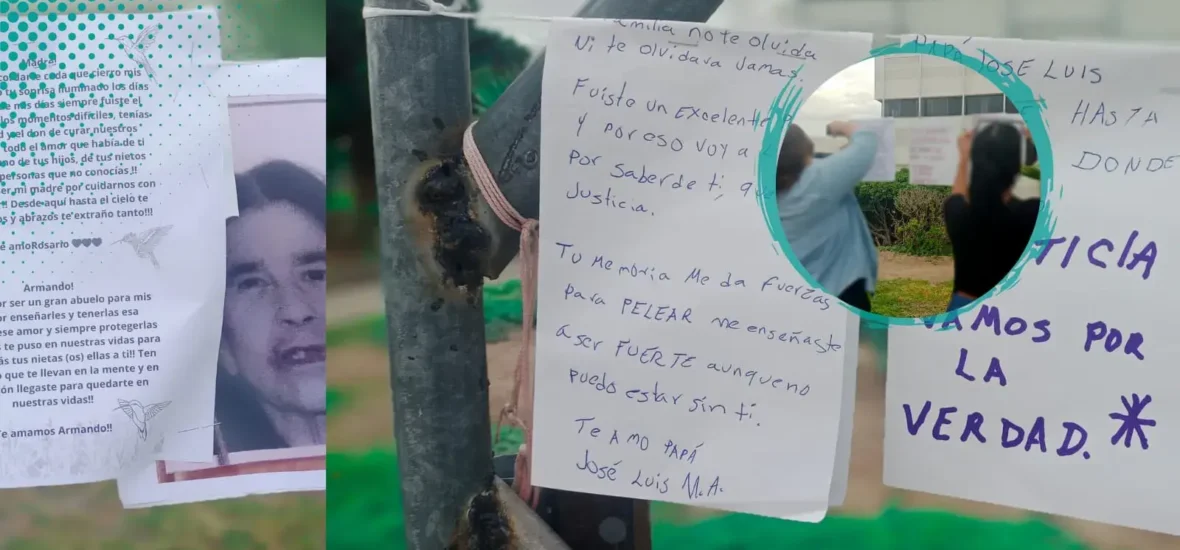 Madre!
cada que cierro mis
tu sonrisa iluminado los días
mis días siempre fuiste el
los momentos difíciles, tenías
y el don de curar nuestros
todo el amor que había de ti
no de tus hijos, de tus nietos
personas que no conocías.!!
ser mi madre por cuidarnos con
!! Desde aquí hasta el cielo te
s y abrazos te extraño tanto!!!
e amo Rosario
Armando!
or ser un gran abuelo para mis
or enseñarles y tenerlas esa
ese amor y siempre protegerlas
te puso en nuestras vidas para
ás tus nietas (os) ellas a ti!! Ten
o que te llevan en la mente y en
ón llegaste para quedarte en
nuestras vidas!!
Te amamos Armando!!
familia no te olvida
Ni te olvidava Jamas.
Fuiste un Excelente
y por eso voy a
por saber de ti, que
Justicia.
Tu Memoria Me da fuerzas
para PELEAR me enseñaste
a ser FUERTE aunque no
puedo estar sin ti.
Te AMO PAPÁ
José Luis M.A.
PAPÁ JOSE LUIS
HASTA
DONDE
TICIA
VAMOS POR
LA
VERDAD. *